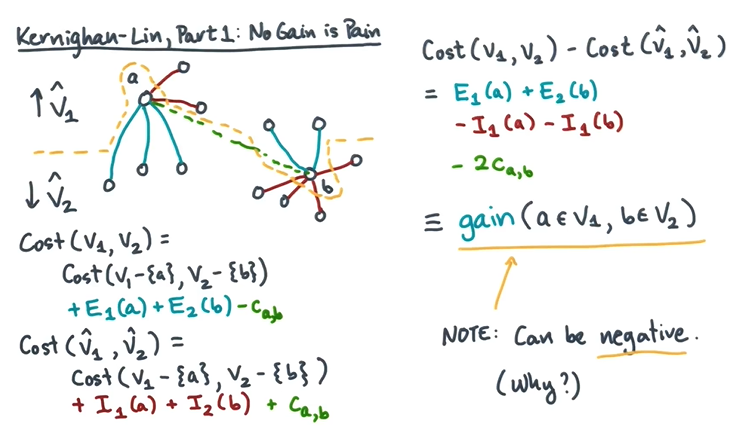 Kernighan-Lin, Part 1: No Gain is Pain
a
↑ V̂₁
↓ V̂₂
b
Cost(V₁, V₂) =
Cost(V₁-{a}, V₂-{b})
+E₁(a)+E₂(b)-c_{a,b}
Cost(V̂₁, V̂₂) =
Cost(V₁-{a}, V₂-{b})
+ I₁(a) + I₂(b) + c_{a,b}
Cost(V₁, V₂) - Cost(V̂₁, V̂₂)
= E₁(a) + E₂(b)
- I₁(a) - I₁(b)
- 2c_{a,b}
≡ gain(a∈V₁, b∈V₂)
NOTE: Can be negative.
(Why?)